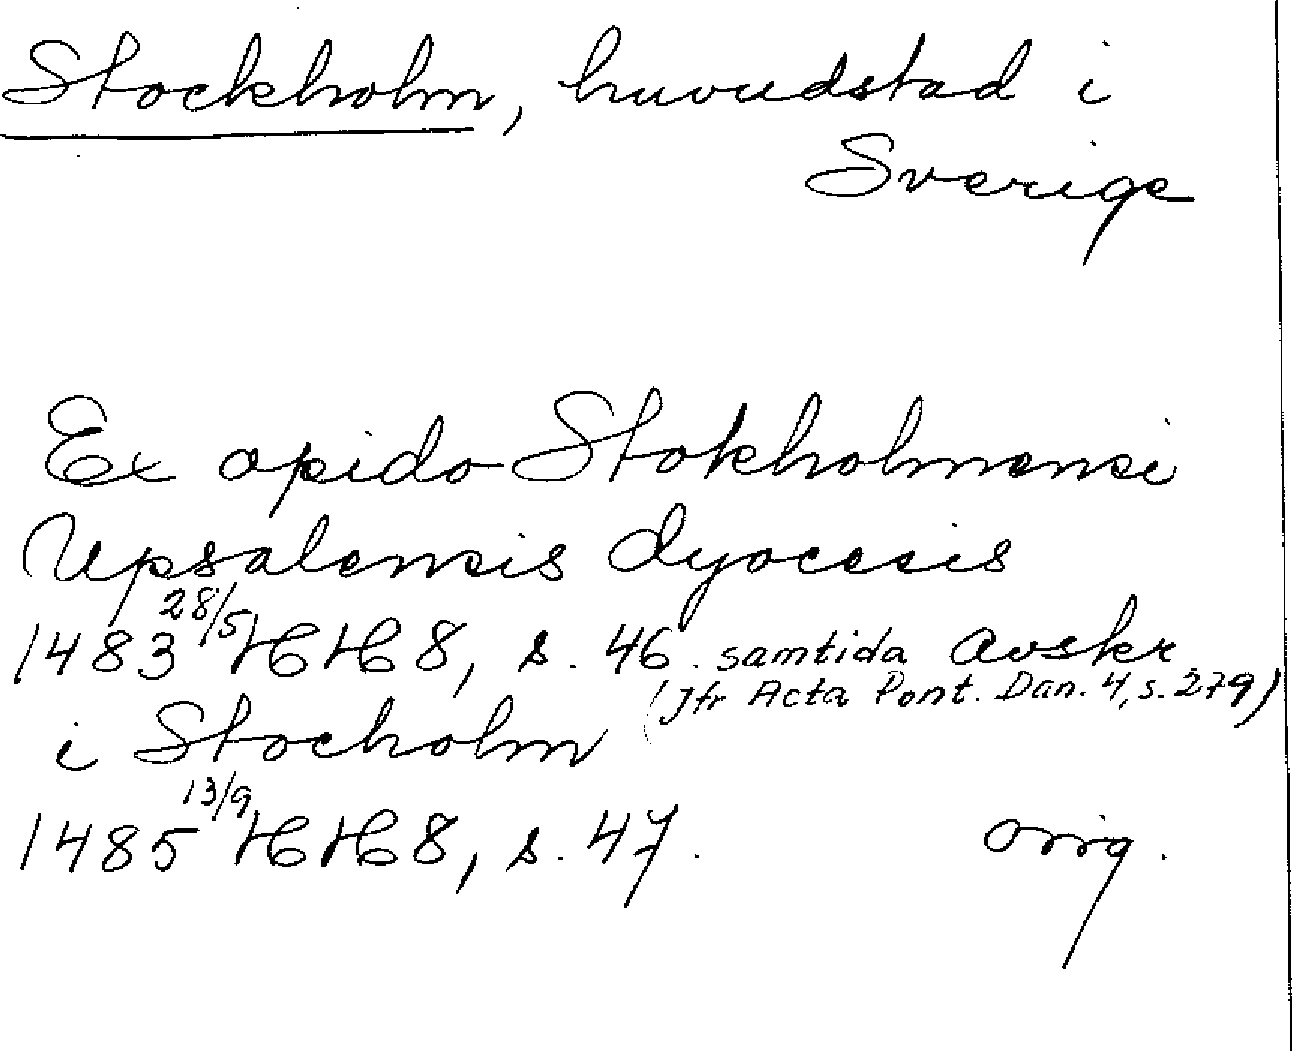 Stockholm, huvudstad i
Sverige
Ex opido Stokholmensi
Upsalensis dyocesis
1483 28/5 HH 8, s. 46. samtida Avskr
(Jfr Acta Pont. Dan. 4, s. 279)
i Stocholm
1485 13/9 HH 8, s. 47. orig.